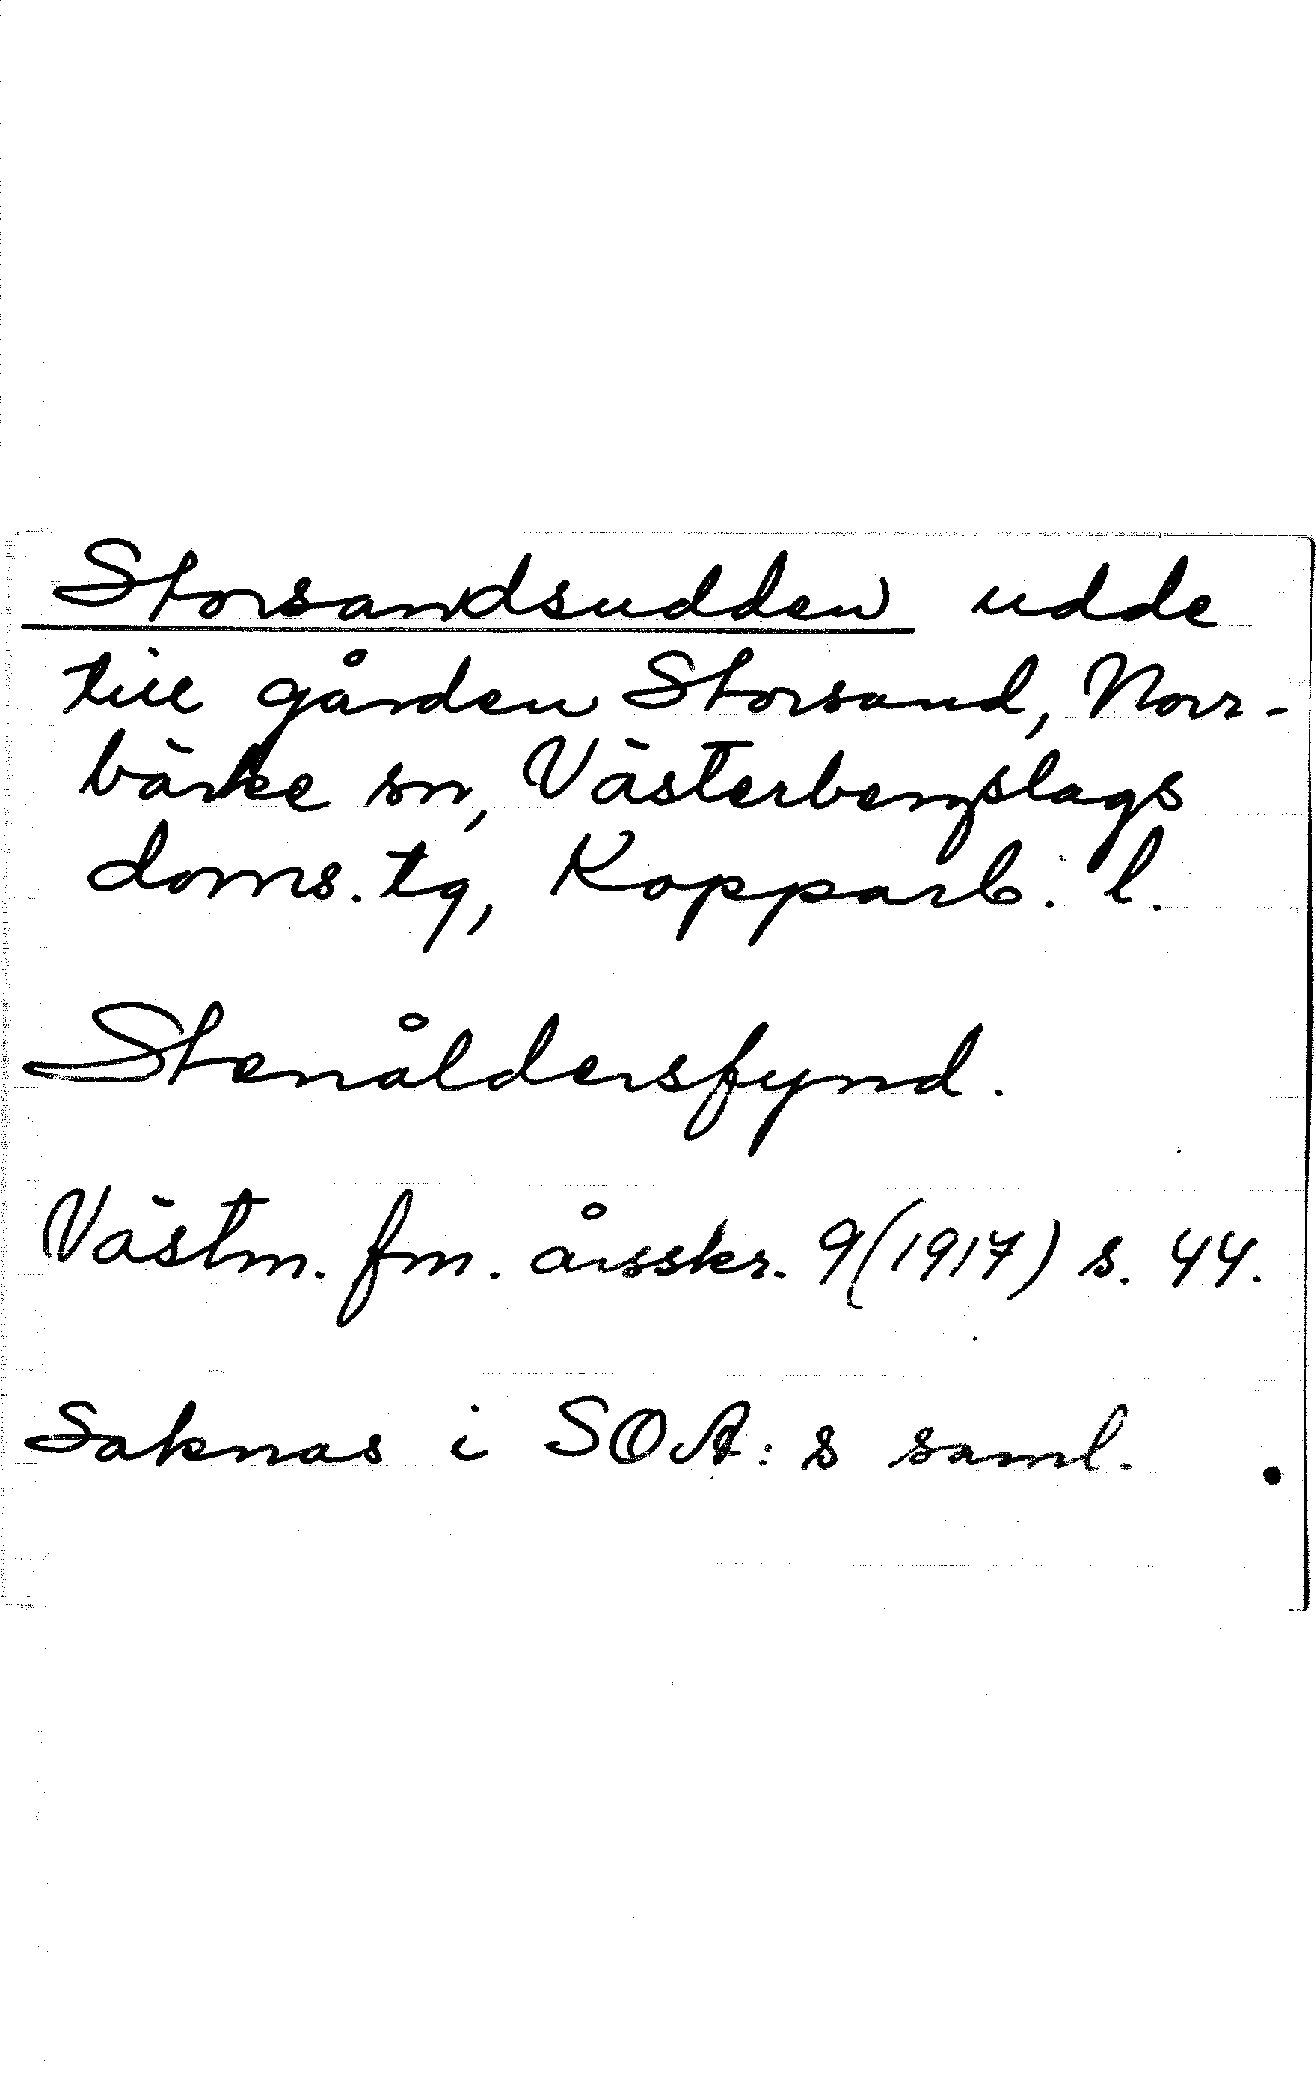 Storsandsudden udde
till gården Storsand, Norr-
bärke sn, Västerbergslags
doms. tg, Kopparb. l.
Stenåldersfynd.
Västm. fm. årsskr. 9(1917) s. 44.
Saknas i SOA:s saml.